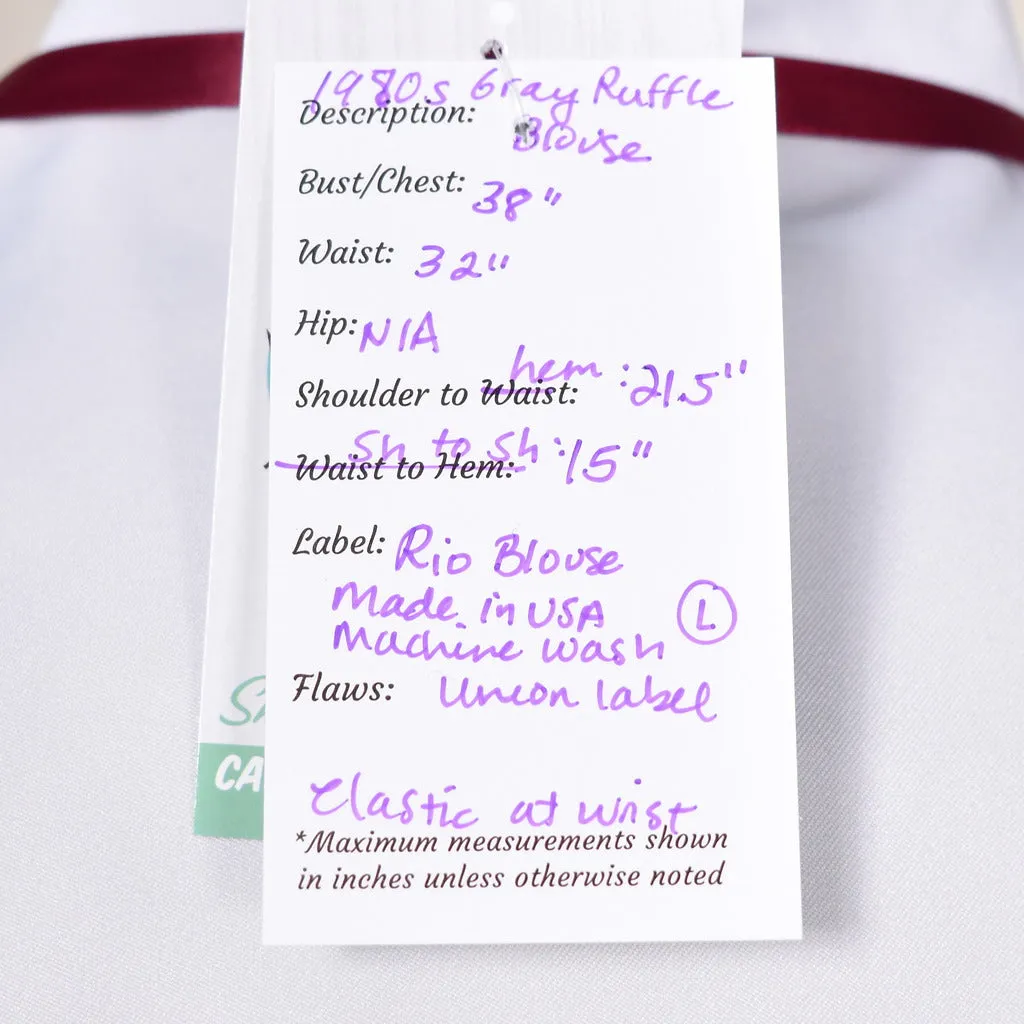 1980s Gray Ruffle
Description:
Blouse
Bust/Chest: 38"
Waist: 32"
Hip: N/A
hem
Shoulder to Waist: :21.5"
Sh to Sh:
Waist to Hem: 15"
Label: Rio Blouse
Made in USA
Machine wash
L
Flaws: Union label
Elastic at wrist
*Maximum measurements shown
in inches unless otherwise noted
CA